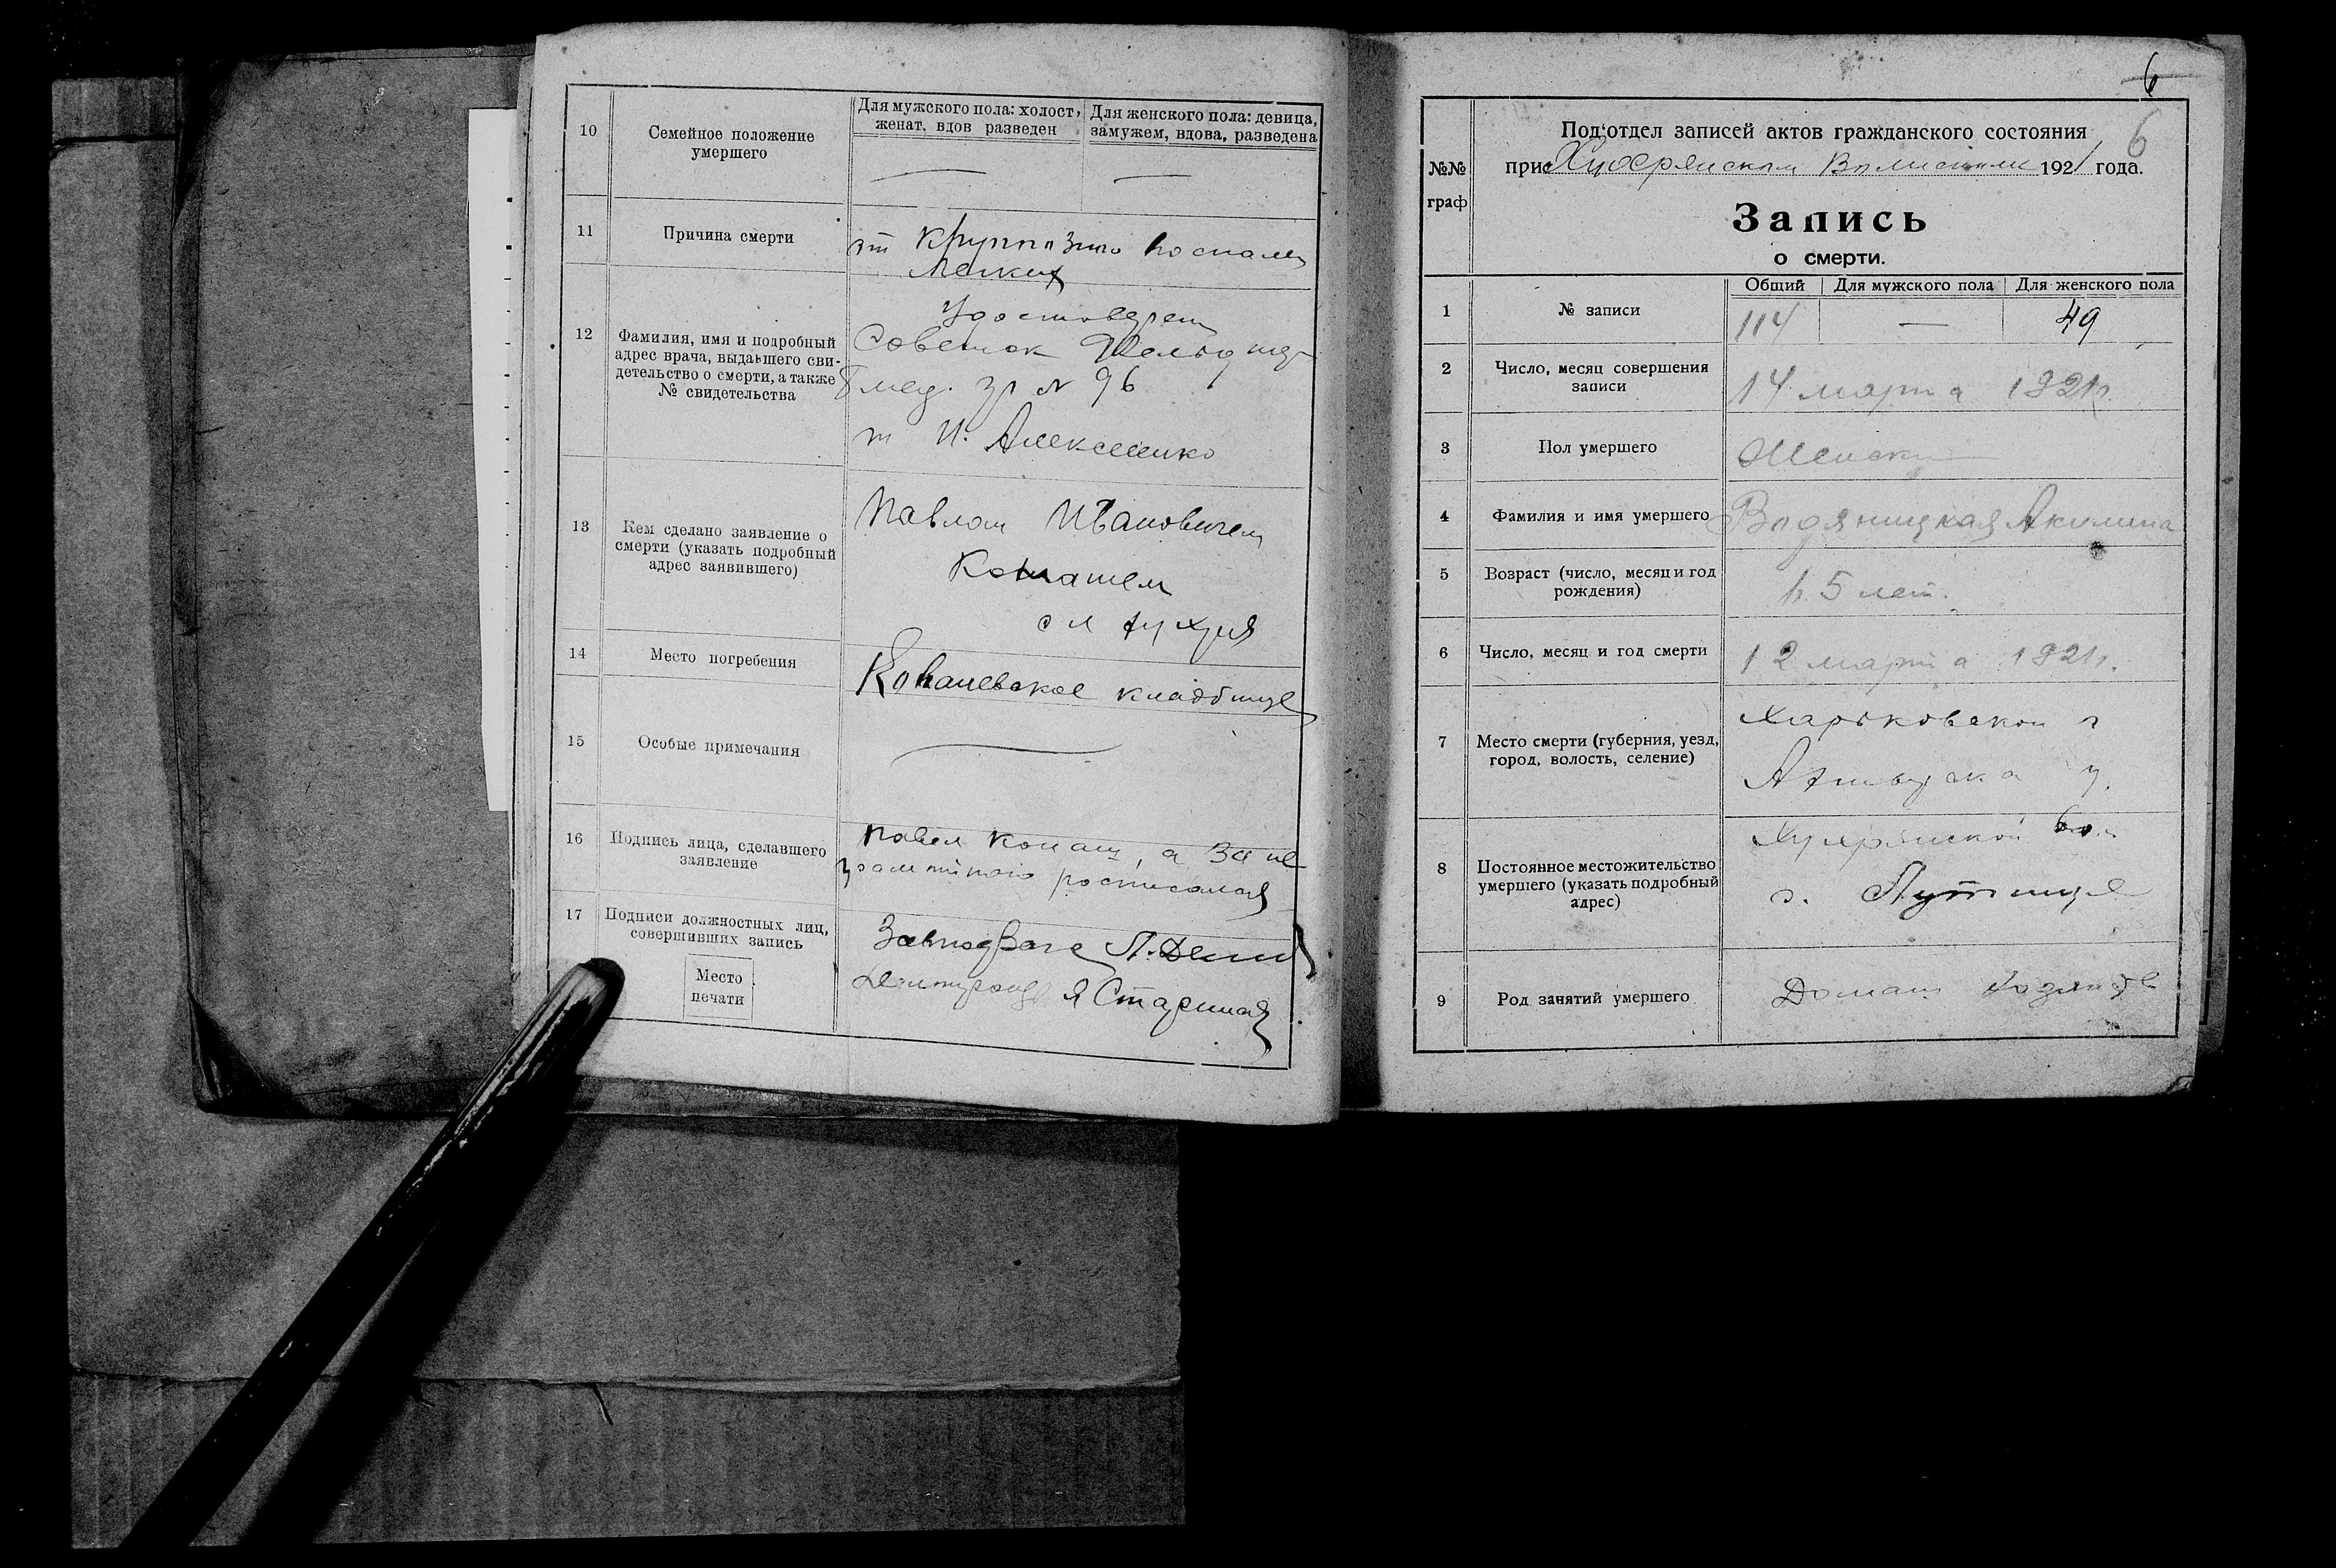 10
Семейное положение
умершего
Для мужского пола: холост,
женат, вдов разведен
Для женского пола: девица,
замужем, вдова, разведена
11
Причина смерти
от крупозного воспален
легких
12
Фамилия, имя и подробный
адрес врача, выдавшего сви-
детельство о смерти, а также
№ свидетельства
Удостоверен
мед. № 96
И. Алексеенко
13
Кем сделано заявление о
смерти (указать подробный
адрес заявившего)
Павлом Ивановичем
14
Место погребения
кладбище
15
Особые примечания
16
Подпись лица, сделавшего
заявление
Павел Конащ, а за не
грамотного росписалася
17
Подписи должностных лиц,
совершивших запись
Место
печати
Стариная
6
6
№№
граф
Под'отдел записей актов гражданского состояния
при Волисполк 1921 года.
Запись
о смерти.
Общий
Для мужского пола
Для женского пола
1
№ записи
114
—
49
2
Число, месяц совершения
записи
14 марта 1921г.
3
Пол умершего
Женски
4
Фамилия и имя умершего
Водяницкая Акилина
5
Возраст (число, месяц и год
рождения)
5 лет.
6
Число, месяц и год смерти
12 марта 1921г.
7
Место смерти (губерния, уезд,
город, волость, селение)
Харьковской г
у.
8
Постоянное местожительство
умершего (указать подробный
адрес)
Хухрянской вол.
9
Род занятий умершего
Домаш Хозяйств